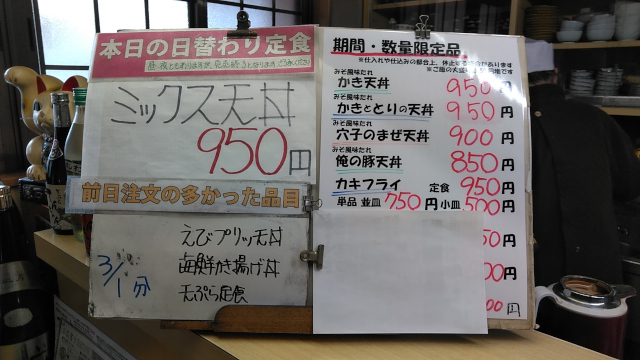 本日の日替わり定食
ミックス天丼
950円
前日注文の多かった品目
3/1分
えびプリッ天丼
海鮮かき揚げ丼
天ぷら定食
期間・数量限定品
※仕入れや仕込みの都合上、休止する場合があります
みそ風味たれ
かき天丼 950円
みそ風味たれ
かきととりの天丼 950円
みそ風味たれ
穴子のまぜ天丼 900円
みそ風味たれ
俺の豚天丼 850円
カキフライ 定食 950円
単品 並皿 750円 小皿 500円
50円
00円
00円